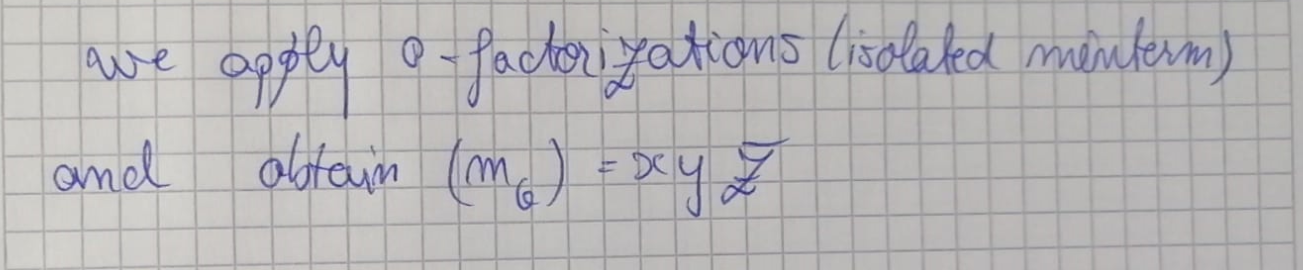 we apply 0-factorizations (isolated minterm)
and obtain (m₆) = x y z̅